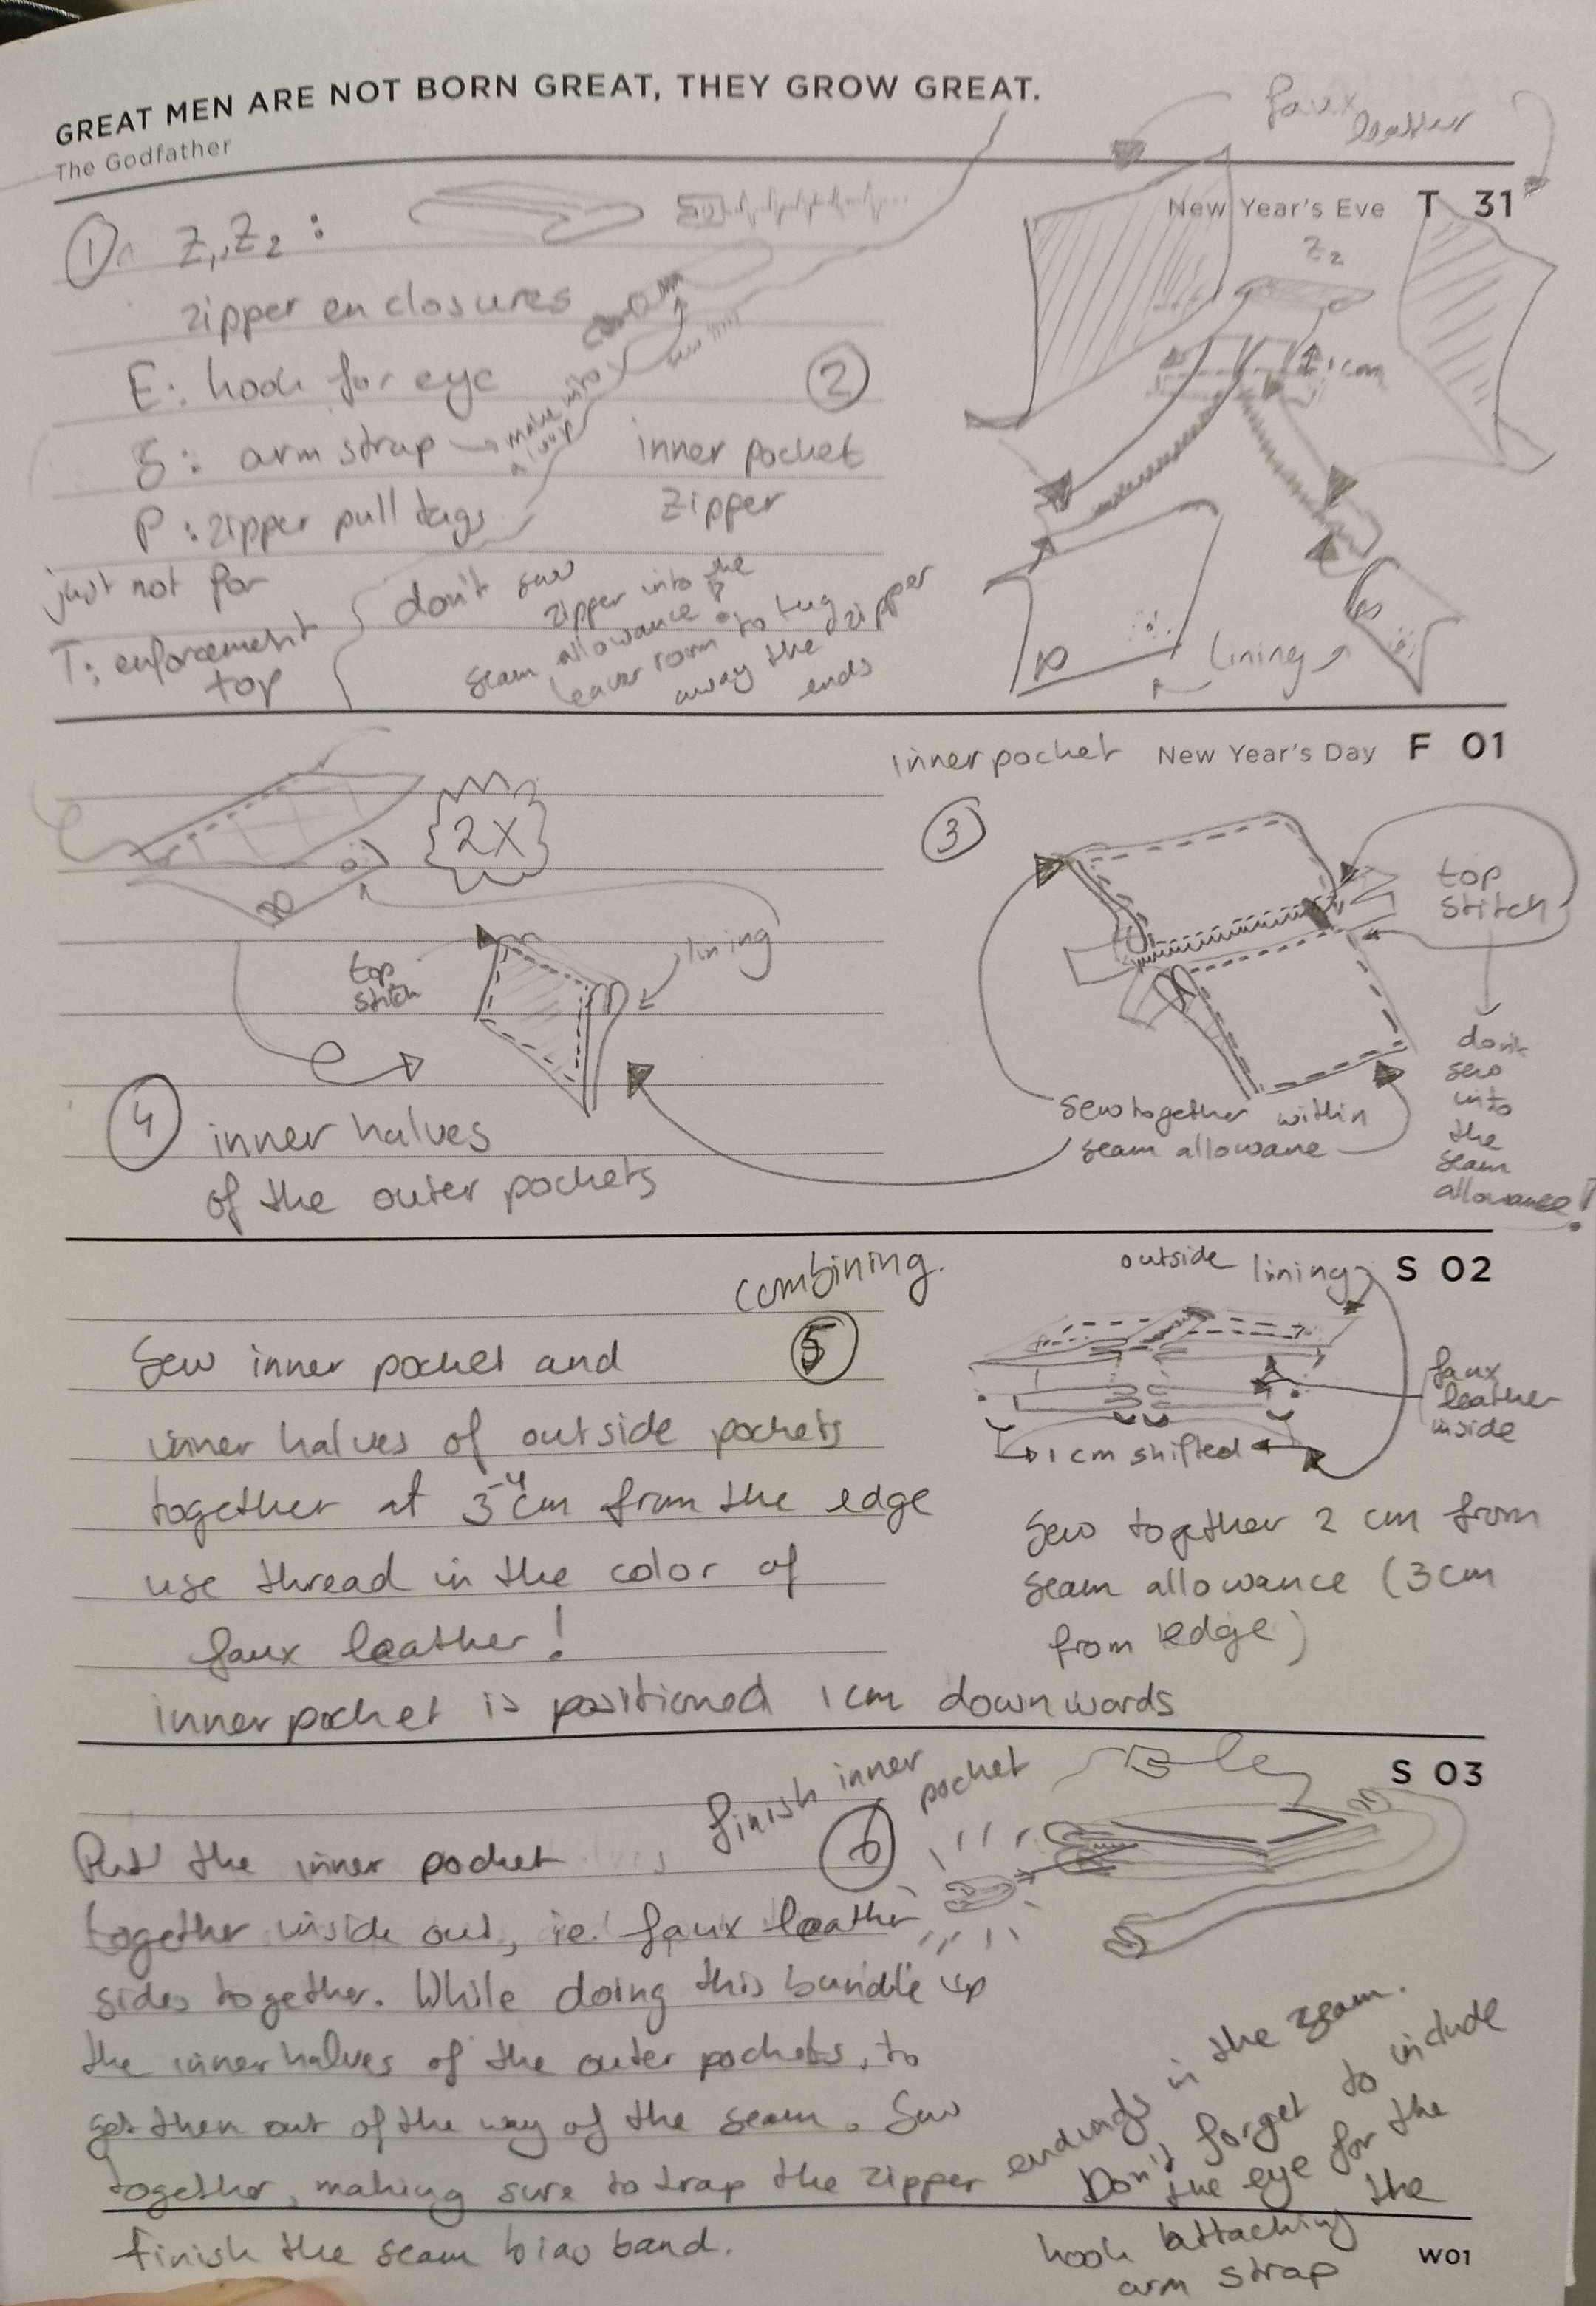 GREAT MEN ARE NOT BORN GREAT, THEY GROW GREAT.
The Godfather
faux
leather
New Year's Eve T 31
1
Z1, Z2 :
zipper enclosures
E: hook for eye
S: arm strap → make into
a loop
P: zipper pull tags
just not for
T: enforcement
top
2
inner pocket
zipper
don't sew
zipper into the
seam allowance
leave room to tug
away the zipper
ends
Z2
1 cm
lining
inner pocket New Year's Day F 01
2X
3
top
stitch
don't
sew
into
the
seam
allowance!
sew together within
seam allowane
top
stitch
lining
4
inner halves
of the outer pockets
combining.
5
outside lining S 02
Sew inner pocket and
inner halves of outside pockets
together at 3-4cm from the edge
use thread in the color of
faux leather!
inner pocket is positioned 1 cm downwards
faux
leather
inside
1 cm shifted
Sew together 2 cm from
seam allowance (3cm
from edge)
S 03
finish inner
pocket
6
Put the inner pocket
together inside out, ie. faux leather
sides together. While doing this bundle up
the inner halves of the outer pockets, to
get them out of the way of the seam. Sew
together, making sure to trap the zipper
endings in the seam.
Don't forget to include
the eye for the
hook attaching the
arm strap
finish the seam bias band.
W01